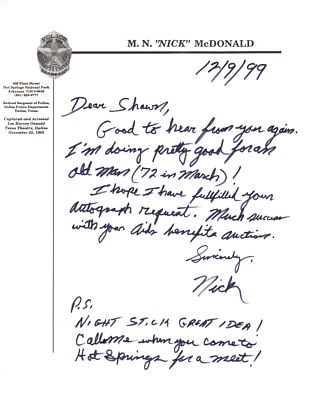 M. N. "NICK" McDONALD
Hot Springs National Park
Retired Sergeant of Police,
Dallas Police Department
Dallas, Texas
Captured and Arrested
Lee Harvey Oswald
Texas Theatre, Dallas
November 22, 1963
12/9/99
Dear Shawn,
Good to hear from you again.
I'm doing pretty good for an
old man (72 in March)!
I hope I have fullfilled your
Autograph request. Much success
with your Aids benefit auction.
Sincerely,
Nick
P.S.
NIGHT STICK GREAT IDEA!
Call me when you come to
Hot Springs for a meet!